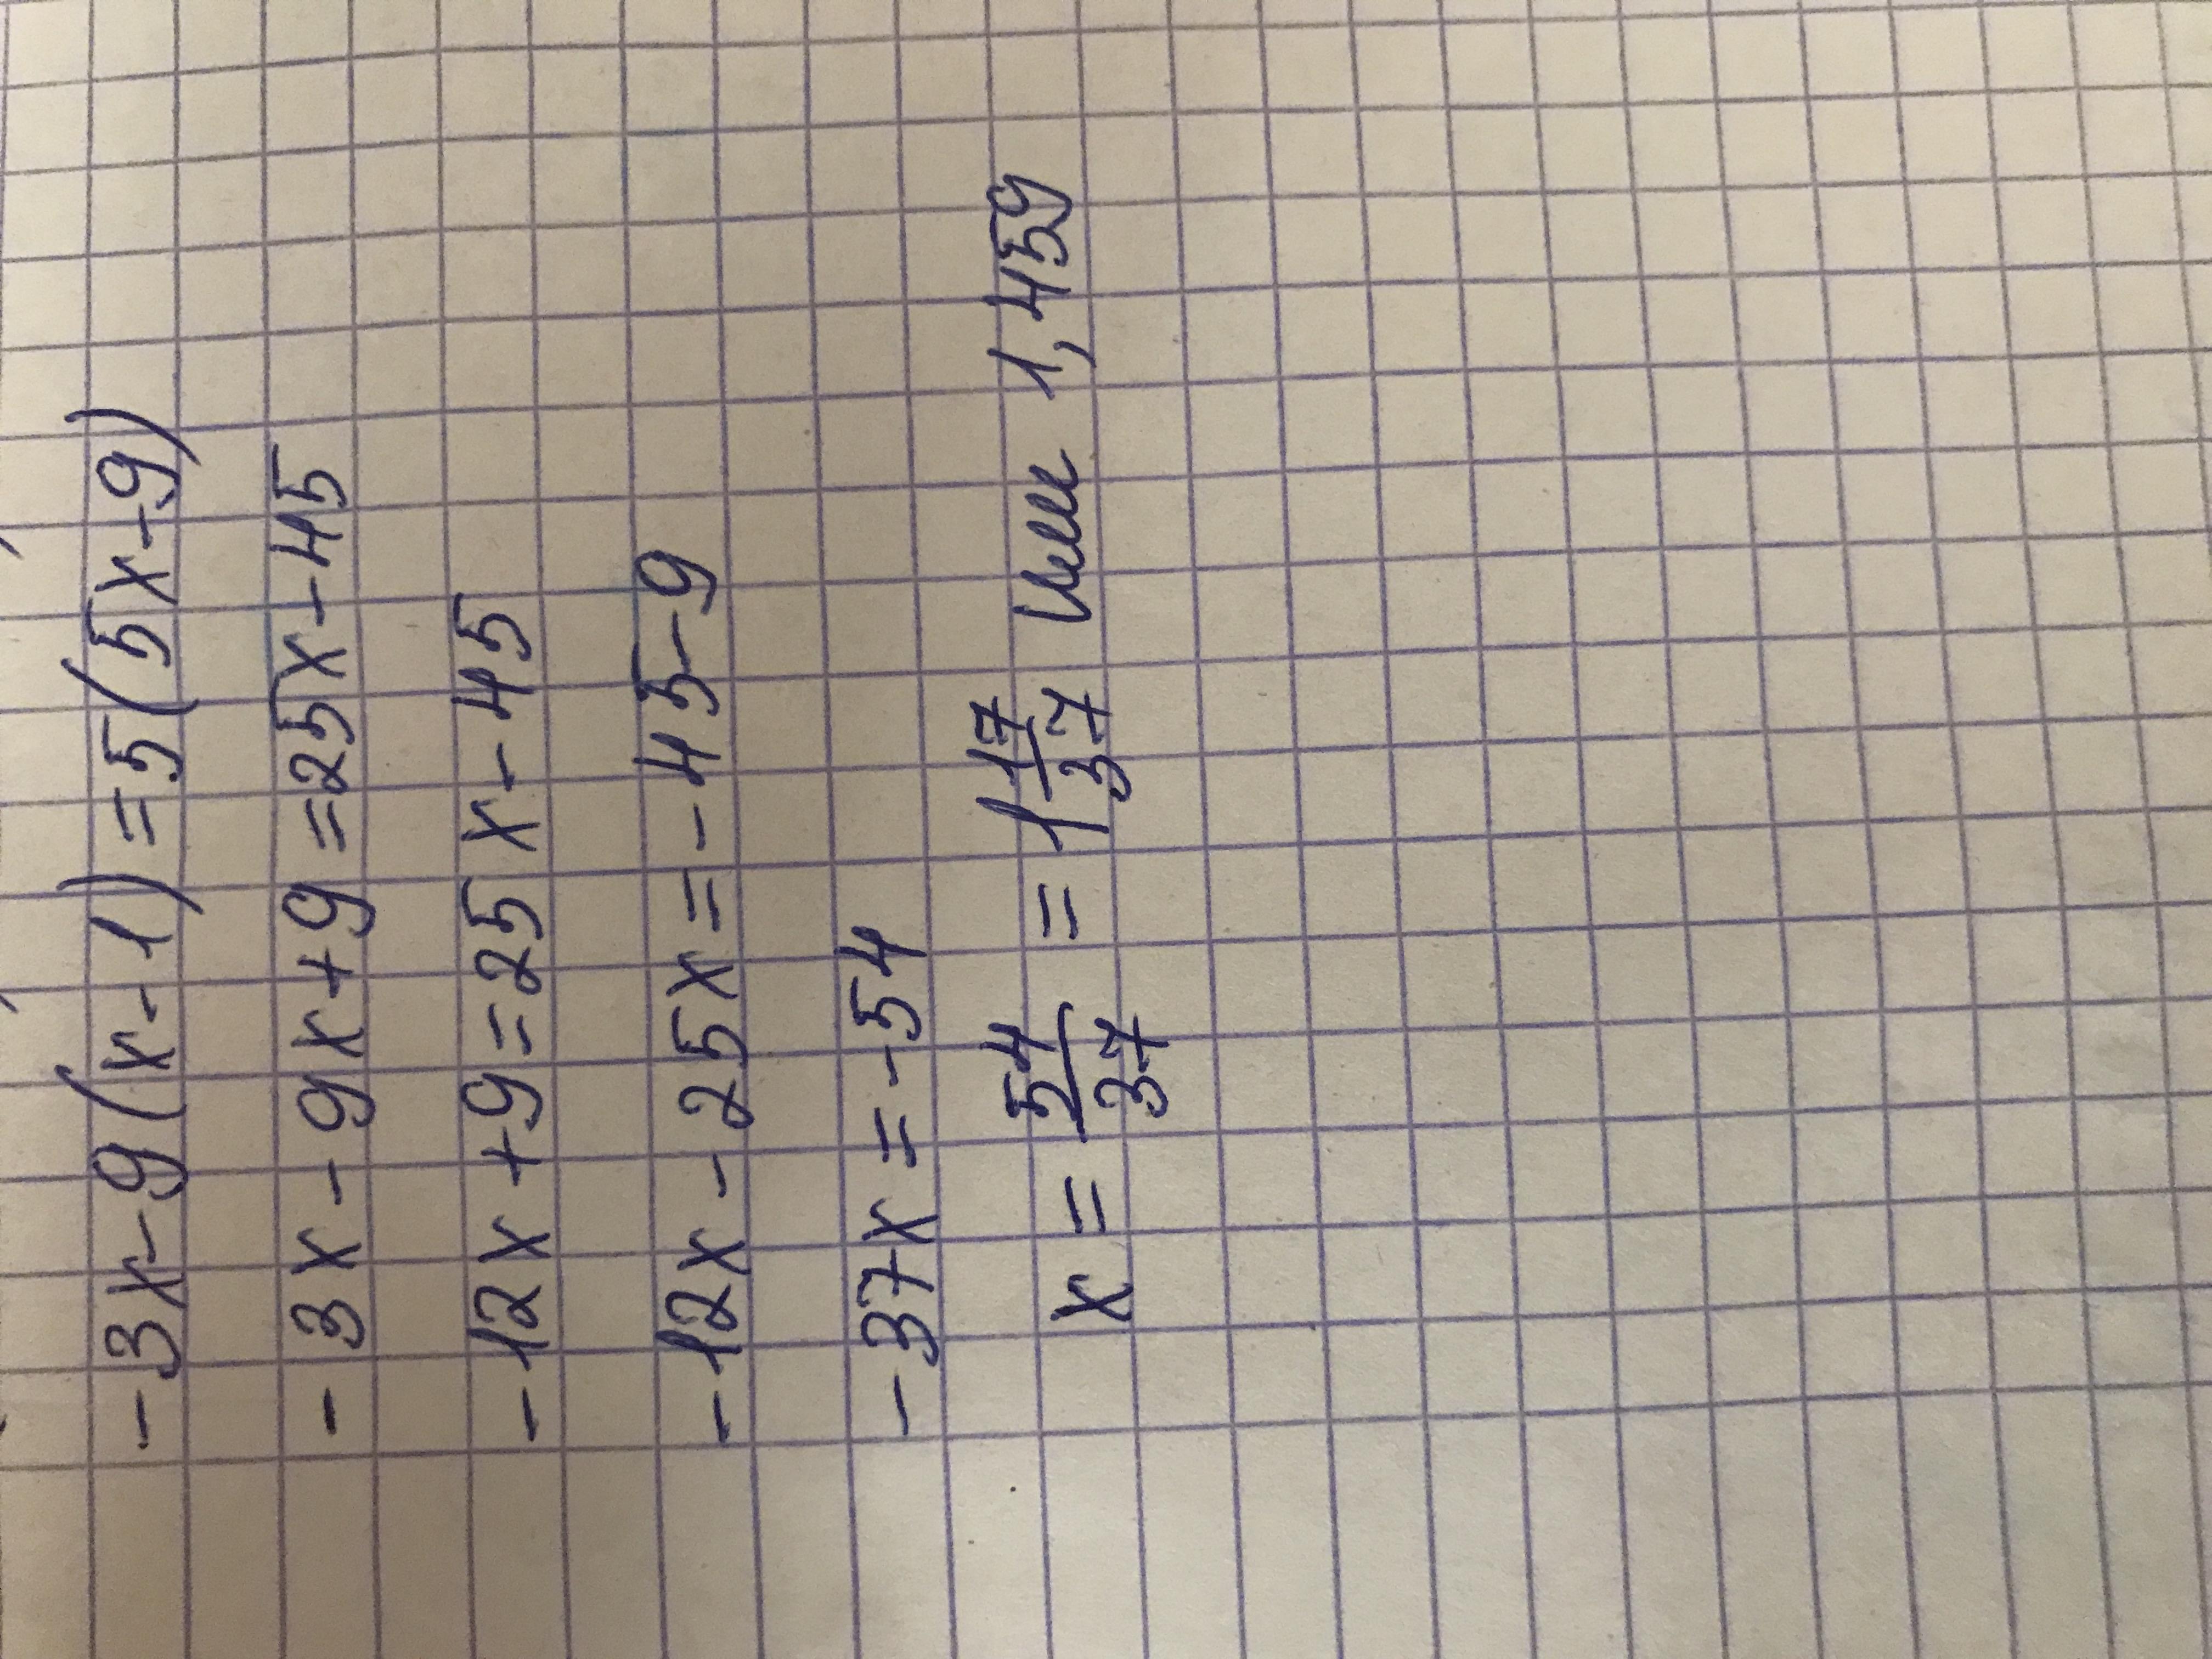 -3x-9(x-1)=5(5x-9)
-3x-9x+9=25x-45
-12x+9=25x-45
-12x-25x=-45-9
-37x=-54
x=54/37=1 17/37 или 1,459